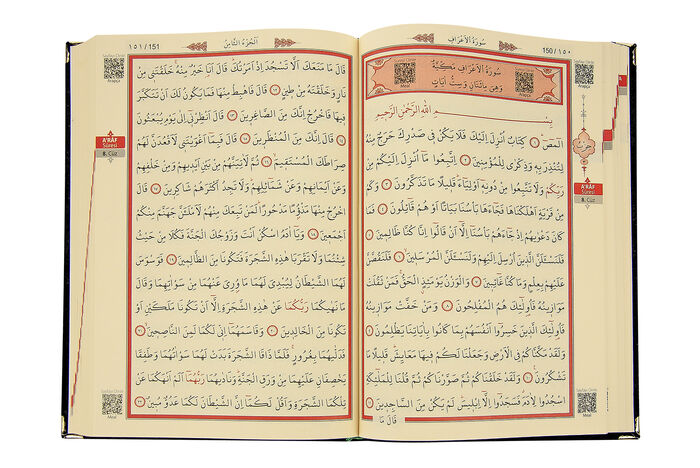 سُورَةُ الْأَعْرَافِ
150 / ١٥٠
سُورَةُ الْأَعْرَافِ مَكِّيَّةٌ
وَهِيَ مِائَتَانِ وَسِتُّ آيَاتٍ
Meal
Arapça
بِسْمِ اللّٰهِ الرَّحْمٰنِ الرَّحِيمِ
الٓمٓصٓ ١ كِتَابٌ اُنْزِلَ اِلَيْكَ فَلَا يَكُنْ فِي صَدْرِكَ حَرَجٌ مِنْهُ
لِتُنْذِرَ بِهِ وَذِكْرٰى لِلْمُؤْمِنِينَ ٢ اِتَّبِعُوا مَا اُنْزِلَ اِلَيْكُمْ مِنْ
رَبِّكُمْ وَلَا تَتَّبِعُوا مِنْ دُونِهِ اَوْلِيَاءَ قَلِيلًا مَا تَذَكَّرُونَ ٣ وَكَمْ
مِنْ قَرْيَةٍ اَهْلَكْنَاهَا فَجَاءَهَا بَأْسُنَا بَيَاتًا اَوْ هُمْ قَائِلُونَ ٤ فَمَا
كَانَ دَعْوٰيهُمْ اِذْ جَاءَهُمْ بَأْسُنَا اِلَّا اَنْ قَالُوا اِنَّا كُنَّا ظَالِمِينَ ٥
فَلَنَسْـَٔلَنَّ الَّذِينَ اُرْسِلَ اِلَيْهِمْ وَلَنَسْـَٔلَنَّ الْمُرْسَلِينَ ٦ فَلَنَقُصَّنَّ
عَلَيْهِمْ بِعِلْمٍ وَمَا كُنَّا غَائِبِينَ ٧ وَالْوَزْنُ يَوْمَئِذٍ الْحَقُّ فَمَنْ ثَقُلَتْ
مَوَازِينُهُ فَاُولٰئِكَ هُمُ الْمُفْلِحُونَ ٨ وَمَنْ خَفَّتْ مَوَازِينُهُ
فَاُولٰئِكَ الَّذِينَ خَسِرُوا اَنْفُسَهُمْ بِمَا كَانُوا بِاٰيَاتِنَا يَظْلِمُونَ ٩
وَلَقَدْ مَكَّنَّاكُمْ فِي الْاَرْضِ وَجَعَلْنَا لَكُمْ فِيهَا مَعَايِشَ قَلِيلًا مَا
تَشْكُرُونَ ١٠ وَلَقَدْ خَلَقْنَاكُمْ ثُمَّ صَوَّرْنَاكُمْ ثُمَّ قُلْنَا لِلْمَلٰئِكَةِ
اسْجُدُوا لِاٰدَمَ فَسَجَدُوا اِلَّا اِبْلِيسَ لَمْ يَكُنْ مِنَ السَّاجِدِينَ ١١
قَالَ مَا
حزب
A'RÂF
Sûresi
8. Cüz
Arapça
Meal
اَلْجُزْءُ الثَّامِنُ
١٥١ / 151
قَالَ مَا مَنَعَكَ اَلَّا تَسْجُدَ اِذْ اَمَرْتُكَ قَالَ اَنَا خَيْرٌ مِنْهُ خَلَقْتَنِي مِنْ
نَارٍ وَخَلَقْتَهُ مِنْ طِينٍ ١٢ قَالَ فَاهْبِطْ مِنْهَا فَمَا يَكُونُ لَكَ اَنْ تَتَكَبَّرَ
فِيهَا فَاخْرُجْ اِنَّكَ مِنَ الصَّاغِرِينَ ١٣ قَالَ اَنْظِرْنِي اِلٰى يَوْمِ يُبْعَثُونَ
١٤ قَالَ اِنَّكَ مِنَ الْمُنْظَرِينَ ١٥ قَالَ فَبِمَا اَغْوَيْتَنِي لَاَقْعُدَنَّ لَهُمْ
صِرَاطَكَ الْمُسْتَقِيمَ ١٦ ثُمَّ لَاٰتِيَنَّهُمْ مِنْ بَيْنِ اَيْدِيهِمْ وَمِنْ خَلْفِهِمْ
وَعَنْ اَيْمَانِهِمْ وَعَنْ شَمَائِلِهِمْ وَلَا تَجِدُ اَكْثَرَهُمْ شَاكِرِينَ ١٧ قَالَ
اخْرُجْ مِنْهَا مَذْؤُمًا مَدْحُورًا لَمَنْ تَبِعَكَ مِنْهُمْ لَاَمْلَئَنَّ جَهَنَّمَ مِنْكُمْ
اَجْمَعِينَ ١٨ وَيَا اٰدَمُ اسْكُنْ اَنْتَ وَزَوْجُكَ الْجَنَّةَ فَكُلَا مِنْ حَيْثُ
شِئْتُمَا وَلَا تَقْرَبَا هٰذِهِ الشَّجَرَةَ فَتَكُونَا مِنَ الظَّالِمِينَ ١٩ فَوَسْوَسَ
لَهُمَا الشَّيْطَانُ لِيُبْدِيَ لَهُمَا مَا وُرِيَ عَنْهُمَا مِنْ سَوْاٰتِهِمَا وَقَالَ
مَا نَهٰيكُمَا رَبُّكُمَا عَنْ هٰذِهِ الشَّجَرَةِ اِلَّا اَنْ تَكُونَا مَلَكَيْنِ اَوْ
تَكُونَا مِنَ الْخَالِدِينَ ٢٠ وَقَاسَمَهُمَا اِنِّي لَكُمَا لَمِنَ النَّاصِحِينَ ٢١
فَدَلّٰيهُمَا بِغُرُورٍ فَلَمَّا ذَاقَا الشَّجَرَةَ بَدَتْ لَهُمَا سَوْاٰتُهُمَا وَطَفِقَا
يَخْصِفَانِ عَلَيْهِمَا مِنْ وَرَقِ الْجَنَّةِ وَنَادٰيهُمَا رَبُّهُمَا اَلَمْ اَنْهَكُمَا عَنْ
تِلْكُمَا الشَّجَرَةِ وَاَقُلْ لَكُمَا اِنَّ الشَّيْطَانَ لَكُمَا عَدُوٌّ مُبِينٌ ٢٢
Arapça
A'RÂF
Sûresi
8. Cüz
Meal